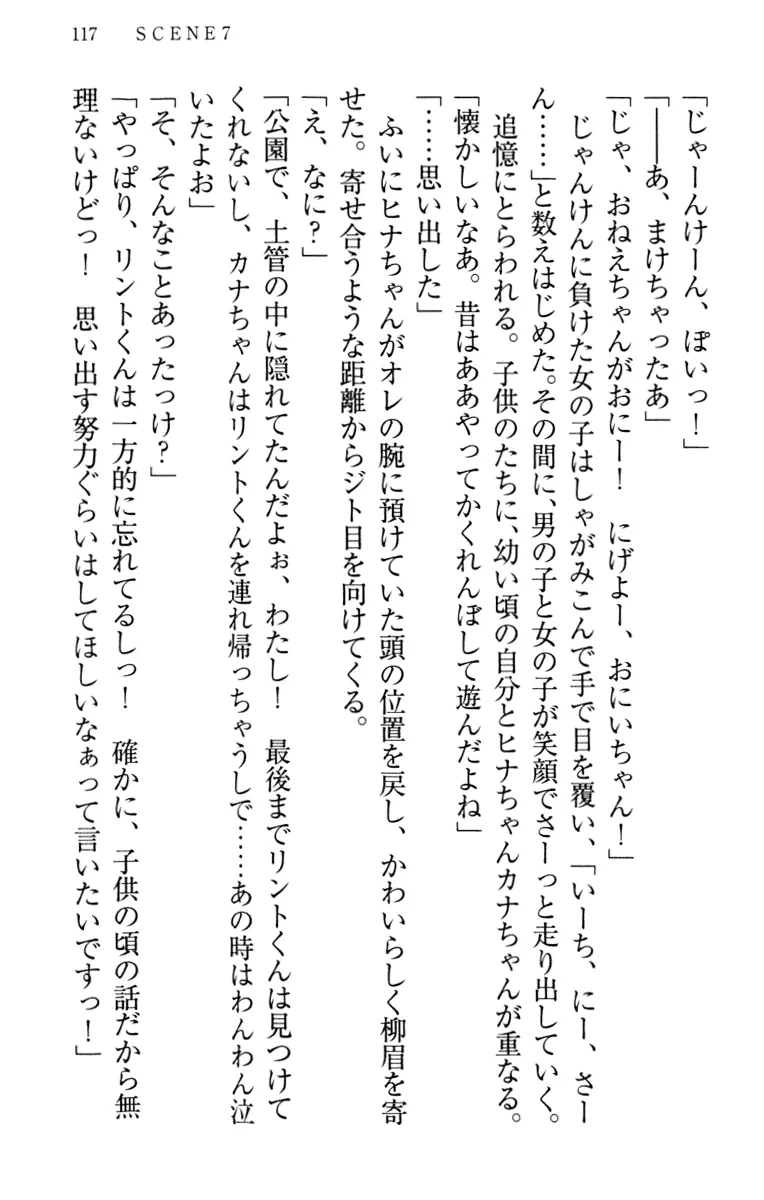 117　SCENE7
「じゃーんけーん、ぽいっ！」
「――あ、まけちゃったあ」
「じゃ、おねえちゃんがおにー！　にげよー、おにいちゃん！」
　じゃんけんに負けた女の子はしゃがみこんで手で目を覆い、「いーち、にー、さー
ん……」と数えはじめた。その間に、男の子と女の子が笑顔でさーっと走り出していく。
　追憶にとらわれる。子供のたちに、幼い頃の自分とヒナちゃんカナちゃんが重なる。
「懐かしいなあ。昔はああやってかくれんぼして遊んだよね」
「……思い出した」
　ふいにヒナちゃんがオレの腕に預けていた頭の位置を戻し、かわいらしく柳眉を寄
せた。寄せ合うような距離からジト目を向けてくる。
「え、なに？」
「公園で、土管の中に隠れてたんだよぉ、わたし！　最後までリントくんは見つけて
くれないし、カナちゃんはリントくんを連れ帰っちゃうしで……あの時はわんわん泣
いたよお」
「そ、そんなことあったっけ？」
「やっぱり、リントくんは一方的に忘れてるしっ！　確かに、子供の頃の話だから無
理ないけどっ！　思い出す努力ぐらいはしてほしいなぁって言いたいですっ！」